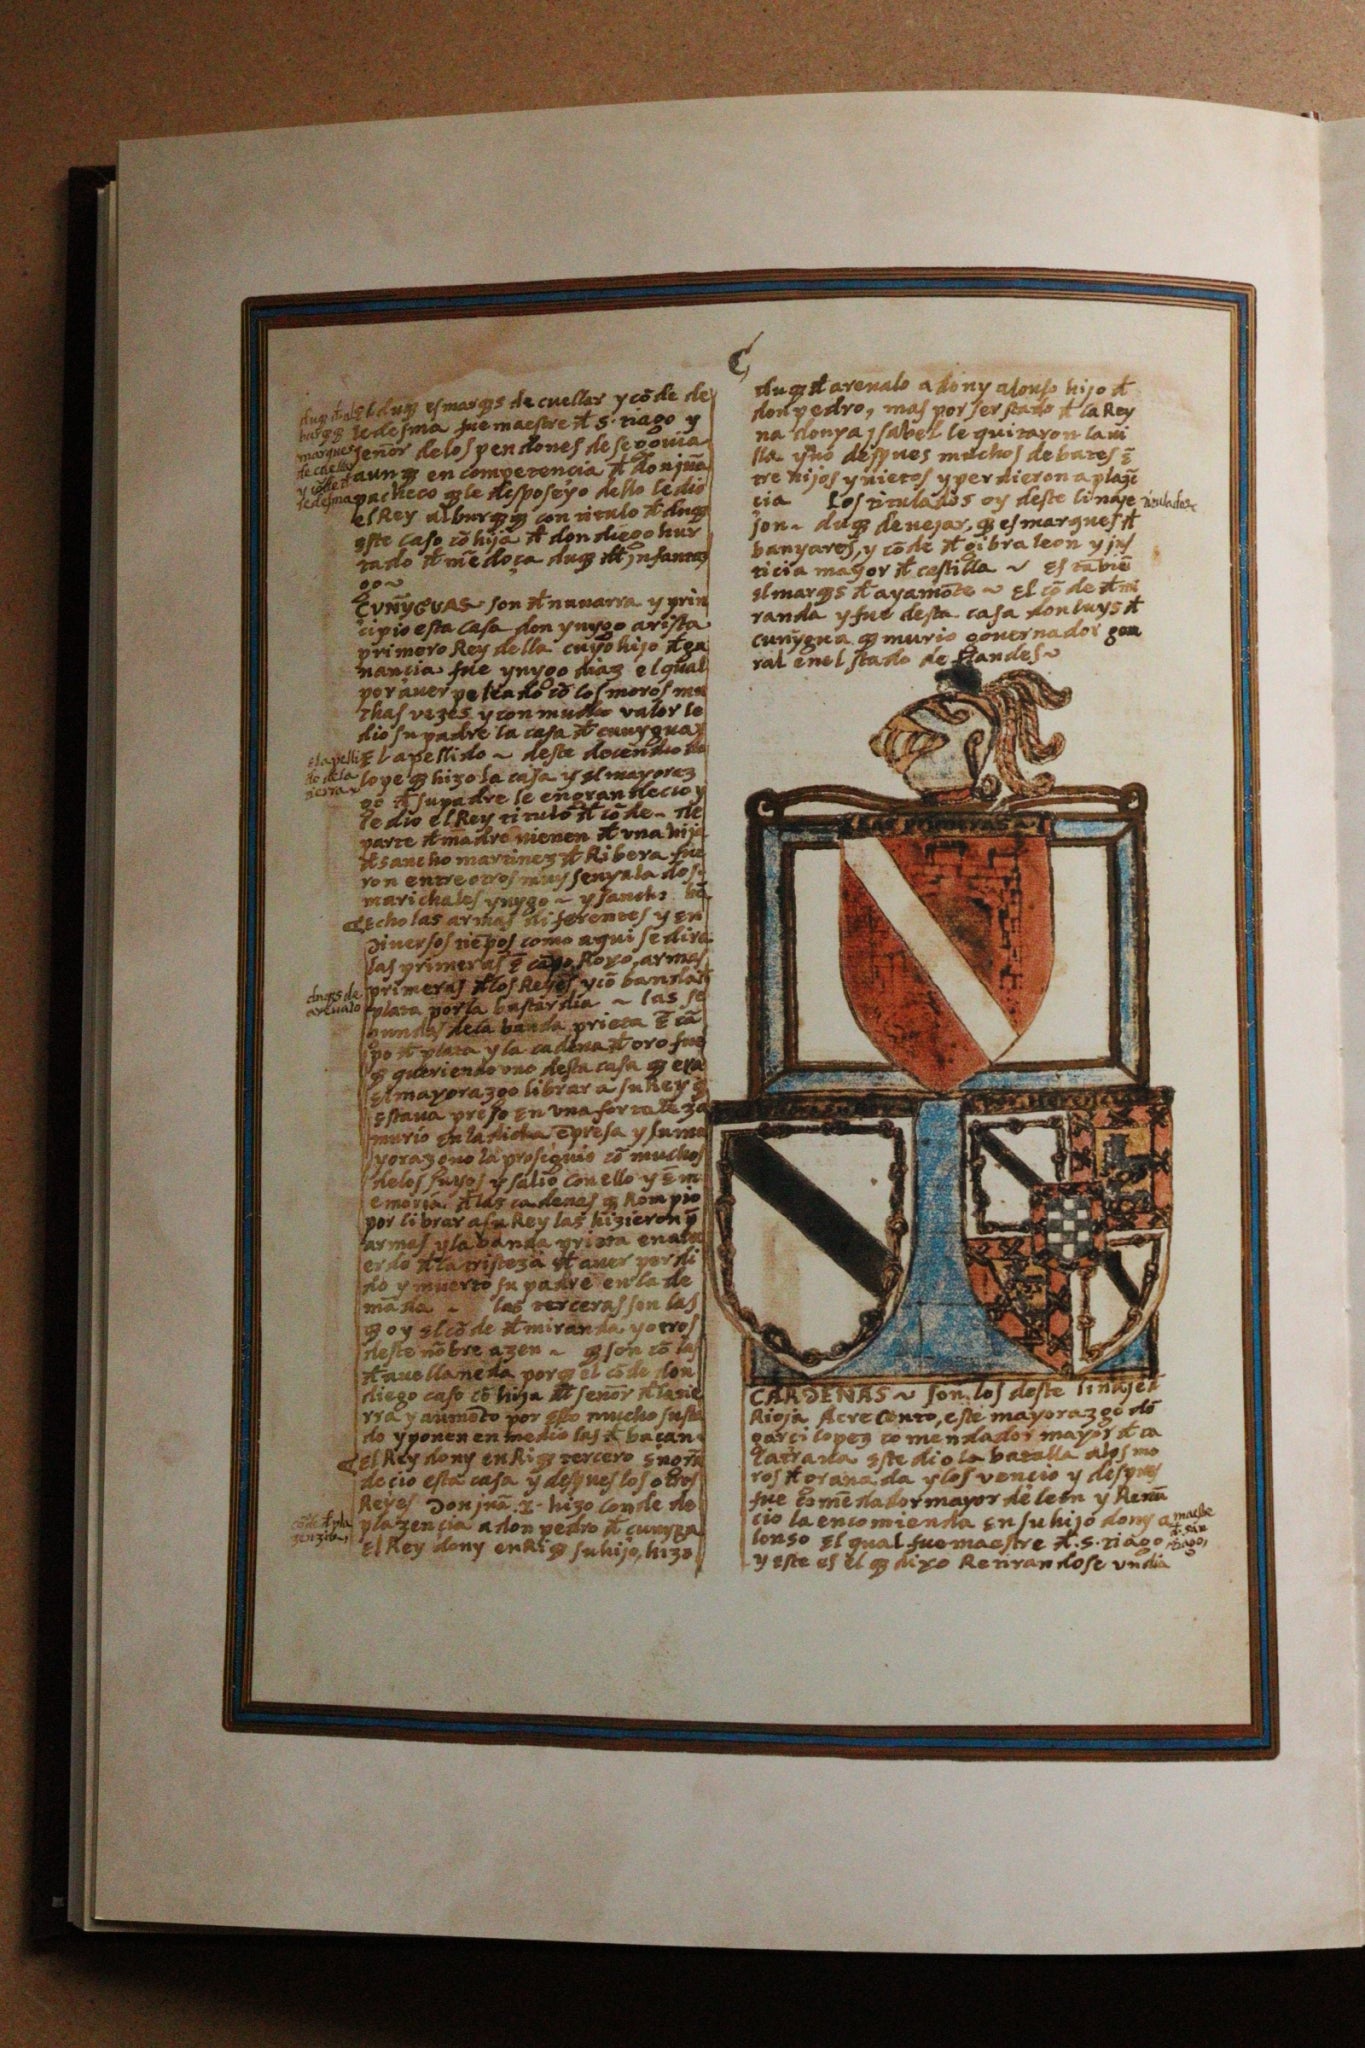 C
el duq̃ es marq̃s de cuellar y cõde de
ledesma fue maestre đ s. tiago y
señor de los pendones de segovia
aunq̃ en competencia đ don juã
pacheco q̃ le desposeyo dello le dio
el Rey alburq̃q̃ con titulo đ duq̃
este caso cõ hija đ don diego hur
tado đ mẽdoça duq̃ đl jnfantaz
go~
CVÑYGVAS~ son đ nauarra y prin
cipio esta casa don ynygo arista
primero Rey della cuyo hijo đ ga
nançia fue ynygo diaz el qual
por auer peleado cõ los moros mu
chas vezes y con mucho valor le
dio su padre la casa đ cunygua y
El apellido ~ deste docendio do
lope q̃ hizo la casa y el mayoraz
go đ su padre le engrandecio y
le dio el Rey titulo đ cõde~ De
parte đ madre vienen đ vna hija
đ sancho martinez đ Ribera fue
ron entre otros muy senyalados
marichales ynygo ~ y sancho hã
echo las armas diferentes y en
diuersos tiẽpos como aqui se dira
las primeras ẽ cãpo Royo, armas
primeras đ los Reyes y cõ banda đ
plata por la bastardia ~ las se
gundas dela banda prieta ẽ cã
po đ plata y la cadena đ oro fue
q̃ queriendo vno desta casa q̃ era
el mayorazgo librar a su Rey q̃
estaua preso en vna fortaleza
murio en la dicha ẽpresa y su ma
yorazgo la proseguio cõ muchos
delos suyos y salio con ello y ẽ m
emoria đ las cadenas q̃ Rompio
por librar a su Rey las hizieron p̃
armas y la banda prieta en acu
erdo đ la tristeza đ auer perdi
do y muerto su padre en la de
mãda ~ las terceras son las
q̃ oy el cõde đ miranda y otros
deste nõbre azen ~ q̃ son cõ las
đ auellaneda porq̃ el cõde don
diego caso cõ hija đl señor đ la tie
rra y aumẽto por esto mucho su sta
do y ponen en medio las đ baçan~
el Rey dony enRiq̃ tercero ẽnora
decio esta casa y despues los otros
Reyes Don juã .2. hizo conde de
plazencia a don pedro đ cunyga
el Rey dony enRiq̃ su hijo, hizo
duq̃ đ al
burq̃q̃
marques
de cuellar
y cõde đ
ledesma
el apelli
do de la
tierra
duq̃s de
areualo
cõde đ pla
zenzia
duq̃ đ arevalo a dony alonso hijo đ
don pedro, mas por ser stado đ la Rey
na donya jsabel le quitaron la vi
lla y vo despues muchos debates ẽ
tre hijos y nietos y perdieron a plazẽ
cia Los titulados oy deste linaje
son~ duq̃ de vejar, q̃ es marques đ
banyares, y cõde đ gibraleon y jus
ticia mayor đ castilla ~ es tãbiẽ
el marq̃s đ ayamõte ~ El cõde đ mi
randa y fue desta casa don luys đ
cunygua q̃ murio governador gene
ral en el stado de flandes~
titulados
las primeras
CARDENAS ~ son los deste linaje đ
Rioja Acrecento, este mayorazgo dõ
garci lopez comendador mayor đ ca
latraua este dio la batalla a los mo
ros đ granada y los vencio y despues
fue comẽdador mayor de leon y Renũ
cio la encomienda en su hijo dony a
lonso El qual fue maestre đ .s. tiago
y este es el q̃ dixo Retirandose vn dia
maestre
đ san
tiago